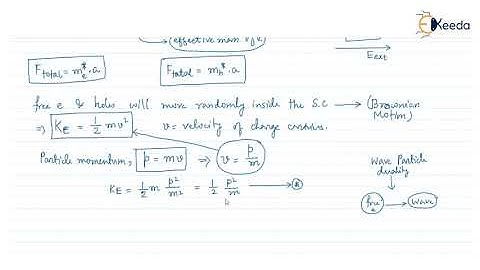 (effective mass of e)
Ekeeda
E_ext
F_total = m_e^* . a
F_total = m_h^* . a
free e & holes will move randomly inside the S.C → (Brownian Motion)
⇒ K_E = 1/2 m v² v = velocity of charge carriers.
Particle momentum = p = mv ⇒ v = p/m
K_E = 1/2 m p²/m² = 1/2 p²/m
Wave Particle
duality
free e → wave